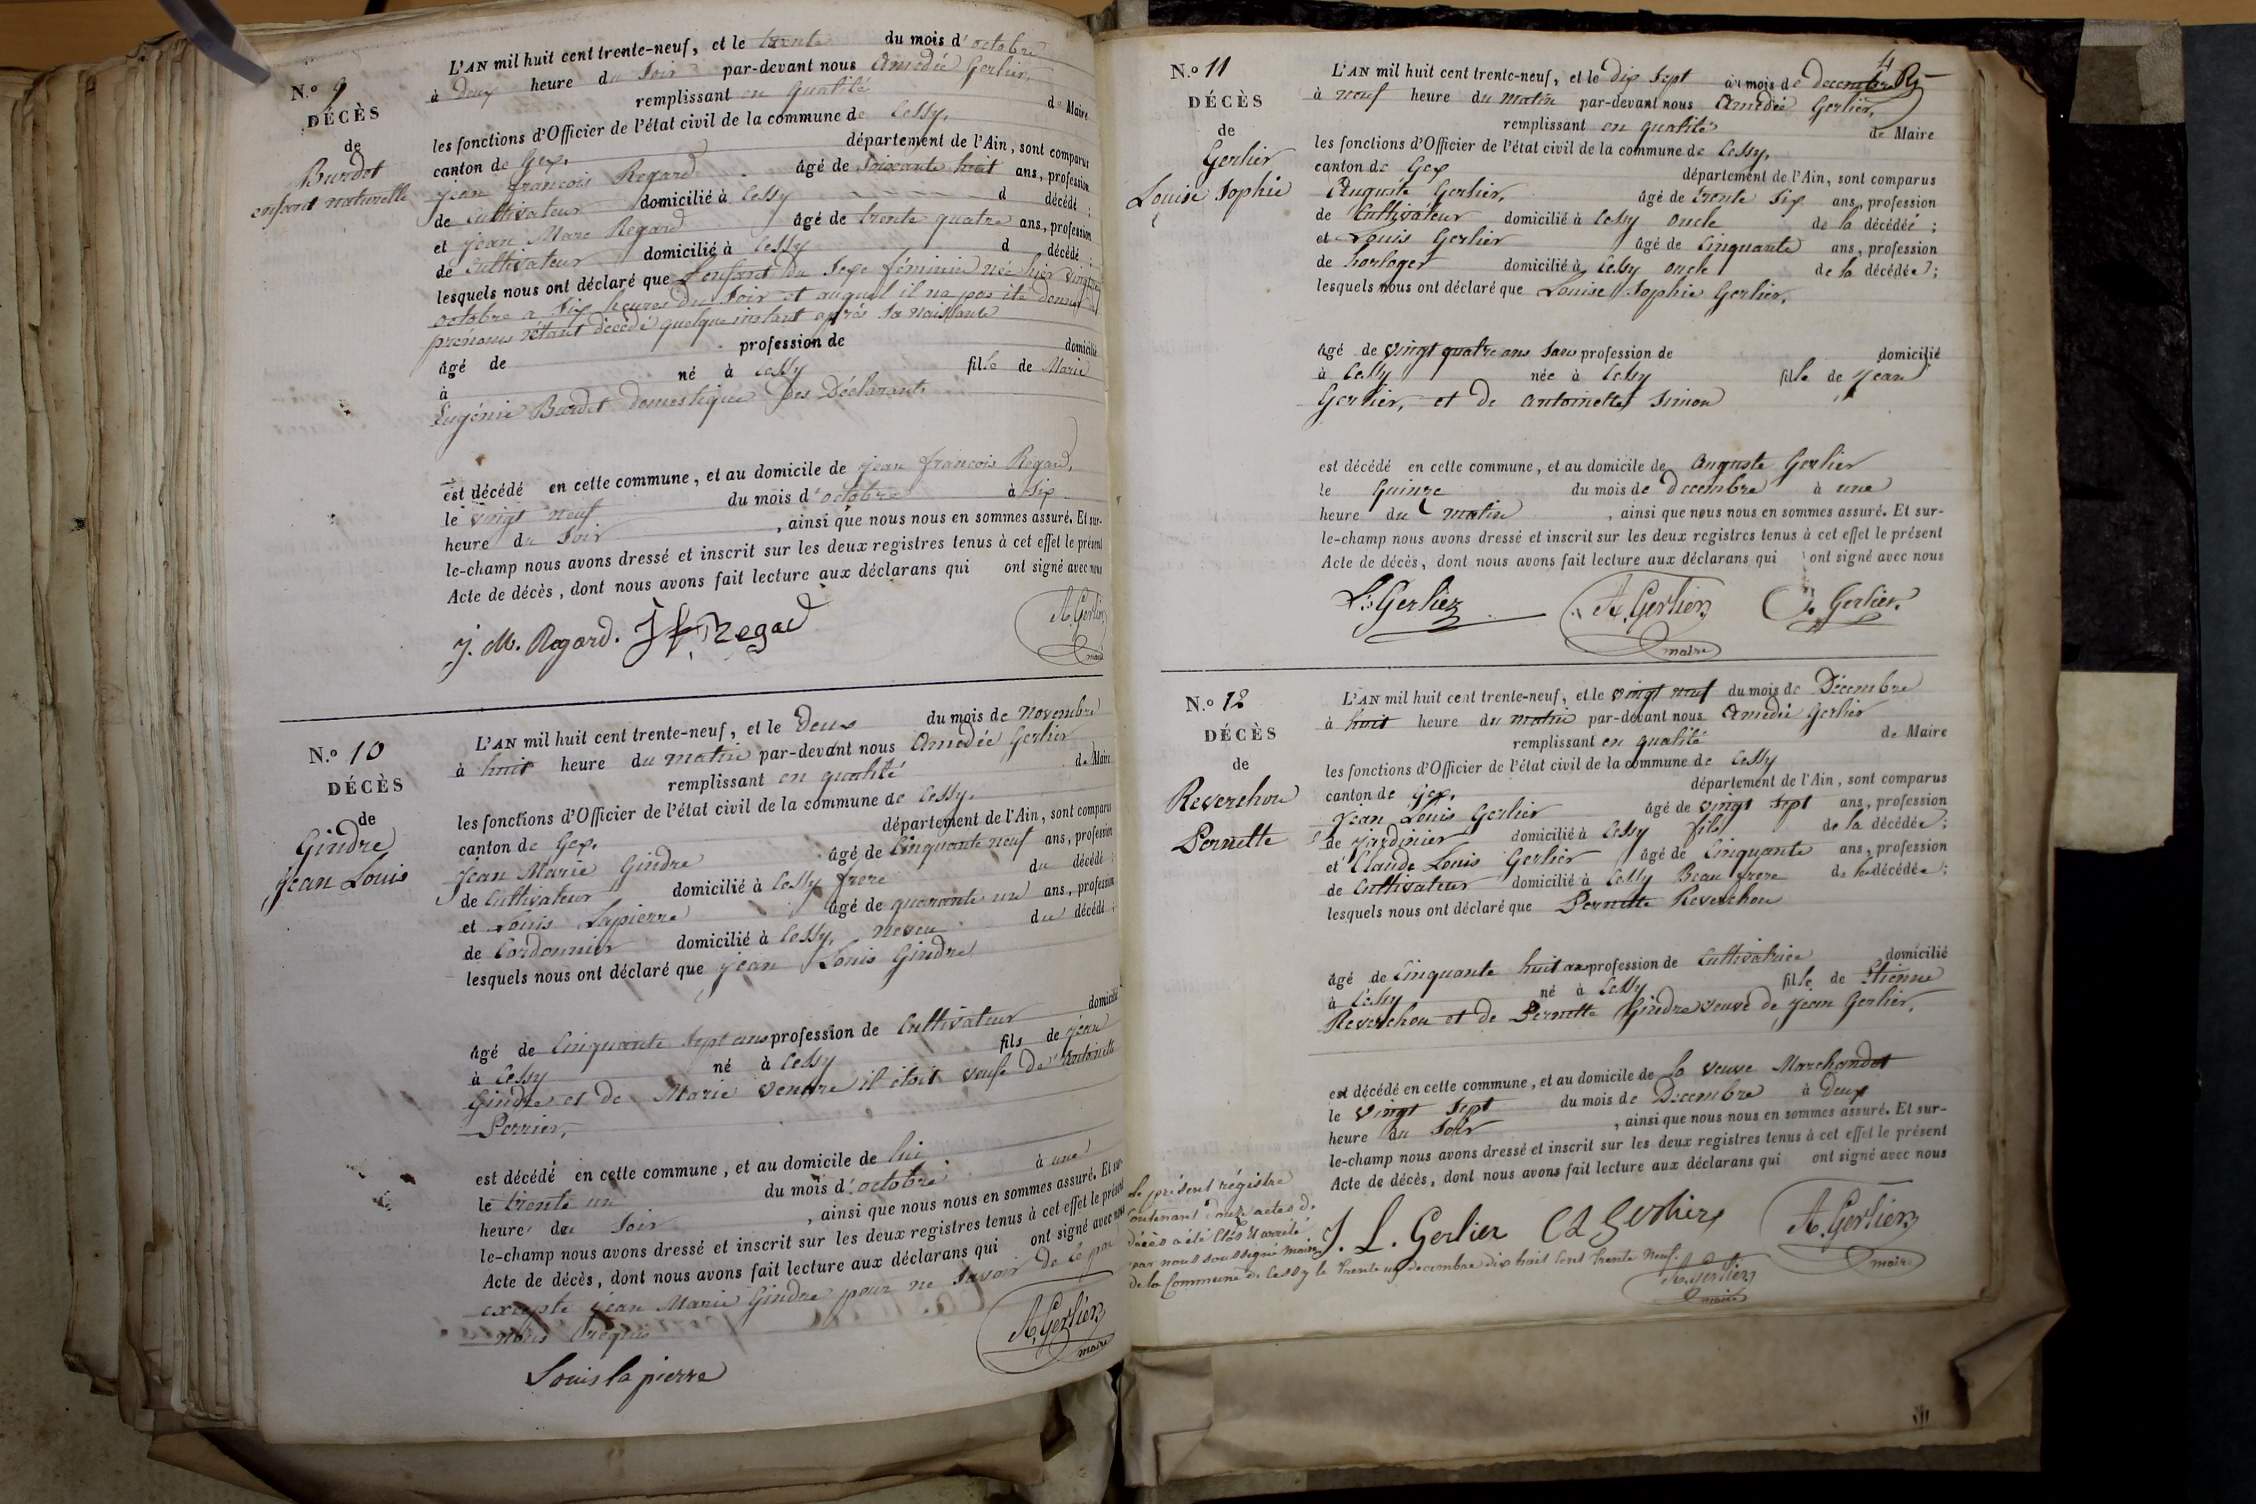 N.º 9
DÉCÈS
de
Burdet
enfant naturelle
L'AN mil huit cent trente-neuf, et le trente du mois d'octobre
à Deux heure du Soir par-devant nous Amedée Gerlier,
remplissant en qualité de Maire
les fonctions d'Officier de l'état civil de la commune de Cessy,
canton de Gex, département de l'Ain, sont comparus
jean francois Regard âgé de Soixante huit ans, profession
de Cultivateur domicilié à Cessy d décédé ;
et jean Marc Regard âgé de trente quatre ans, profession
de Cultivateur domicilié à Cessy d décédé ;
lesquels nous ont déclaré que L'enfant du Sexe féminin née hier vingt neuf
octobre a Six heures du Soir et auquel il na pas été donné
prénoms étant décédé quelque instant après Sa naissance
âgé de profession de domicilié
à né à Cessy fille de Marie
Eugénie Burdet domestique des Déclarants
est décédé en cette commune, et au domicile de jean francois Regard,
le vingt neuf du mois d'octobre à Six
heure du Soir , ainsi que nous nous en sommes assuré. Et sur-
le-champ nous avons dressé et inscrit sur les deux registres tenus à cet effet le présent
Acte de décès, dont nous avons fait lecture aux déclarans qui ont signé avec nous
J. M. Regard. J f. Regad A. Gerlier
maire
N.º 10
DÉCÈS
de
Gindre
jean Louis
L'AN mil huit cent trente-neuf, et le Deux du mois de Novembre
à huit heure du matin par-devant nous Amedée Gerlier
remplissant en qualité de Maire
les fonctions d'Officier de l'état civil de la commune de Cessy,
canton de Gex, département de l'Ain, sont comparus
jean Marie Gindre âgé de Cinquante neuf ans, profession
de Cultivateur domicilié à Cessy frere du décédé ;
et Louis Lapierre âgé de quarante un ans, profession
de Cordonnier domicilié à Cessy, neveu du décédé ;
lesquels nous ont déclaré que jean Louis Gindre
âgé de Cinquante Sept ans profession de Cultivateur domicilié
à Cessy né à Cessy fils de jean
Gindre et de Marie Vendre il était veuf de Antoinette
Perrier,
est décédé en cette commune, et au domicile de lui
le trente un du mois d'octobre à une
heure du Soir , ainsi que nous nous en sommes assuré. Et sur-
le-champ nous avons dressé et inscrit sur les deux registres tenus à cet effet le présent
Acte de décès, dont nous avons fait lecture aux déclarans qui ont signé avec nous
excepté jean Marie Gindre pour ne Savoir de le par
nous requis
Louis lapierre A. Gerlier
maire
4
N.º 11
DÉCÈS
de
Gerlier
Louise Sophie
L'AN mil huit cent trente-neuf, et le dix Sept du mois de decembre
à neuf heure du matin par-devant nous Amedée Gerlier,
remplissant en qualité de Maire
les fonctions d'Officier de l'état civil de la commune de Cessy,
canton de Gex département de l'Ain, sont comparus
Auguste Gerlier, âgé de trente Six ans, profession
de Cultivateur domicilié à Cessy oncle de la décédée ;
et Louis Gerlier âgé de Cinquante ans, profession
de horloger domicilié à Cessy oncle de la décédée ;
lesquels nous ont déclaré que Louise Sophie Gerlier,
âgé de vingt quatre ans Sans profession de domicilié
à Cessy née à Cessy fille de jean
Gerlier, et de antoinette Simon
est décédé en cette commune, et au domicile de Auguste Gerlier
le Quinze du mois de Decembre à une
heure du matin , ainsi que nous nous en sommes assuré. Et sur-
le-champ nous avons dressé et inscrit sur les deux registres tenus à cet effet le présent
Acte de décès, dont nous avons fait lecture aux déclarans qui ont signé avec nous
L. Gerlier A. Gerlier Gerlier.
maire
N.º 12
DÉCÈS
de
Reverchon
Pernette
L'AN mil huit cent trente-neuf, et le vingt neuf du mois de Décembre
à huit heure du matin par-devant nous Amedée Gerlier
remplissant en qualité de Maire
les fonctions d'Officier de l'état civil de la commune de Cessy
canton de Gex, département de l'Ain, sont comparus
jean Louis Gerlier âgé de vingt Sept ans, profession
de jardinier domicilié à Cessy fils de la décédée ;
et Claude Louis Gerlier âgé de Cinquante ans, profession
de Cultivateur domicilié à Cessy Beau frere de la décédée ;
lesquels nous ont déclaré que Pernette Reverchon
âgé de Cinquante huit ans profession de Cultivatrice domicilié
à Cessy né à Cessy fille de Etienne
Reverchon et de Pernette Gindre veuve de jean Gerlier,
est décédé en cette commune, et au domicile de la veuve Marchandet
le vingt Sept du mois de Decembre à Deux
heure du Soir , ainsi que nous nous en sommes assuré. Et sur-
le-champ nous avons dressé et inscrit sur les deux registres tenus à cet effet le présent
Acte de décès, dont nous avons fait lecture aux déclarans qui ont signé avec nous
J. L. Gerlier C L Gerlier A. Gerlier
maire
Le présent régistre
contenant Douze actes de
décès a été Clos & arrété
par nous soussigné Maire
de la Commune de Cessy le trente un decembre dix huit Cent trente Neuf.
A. Gerlier
maire